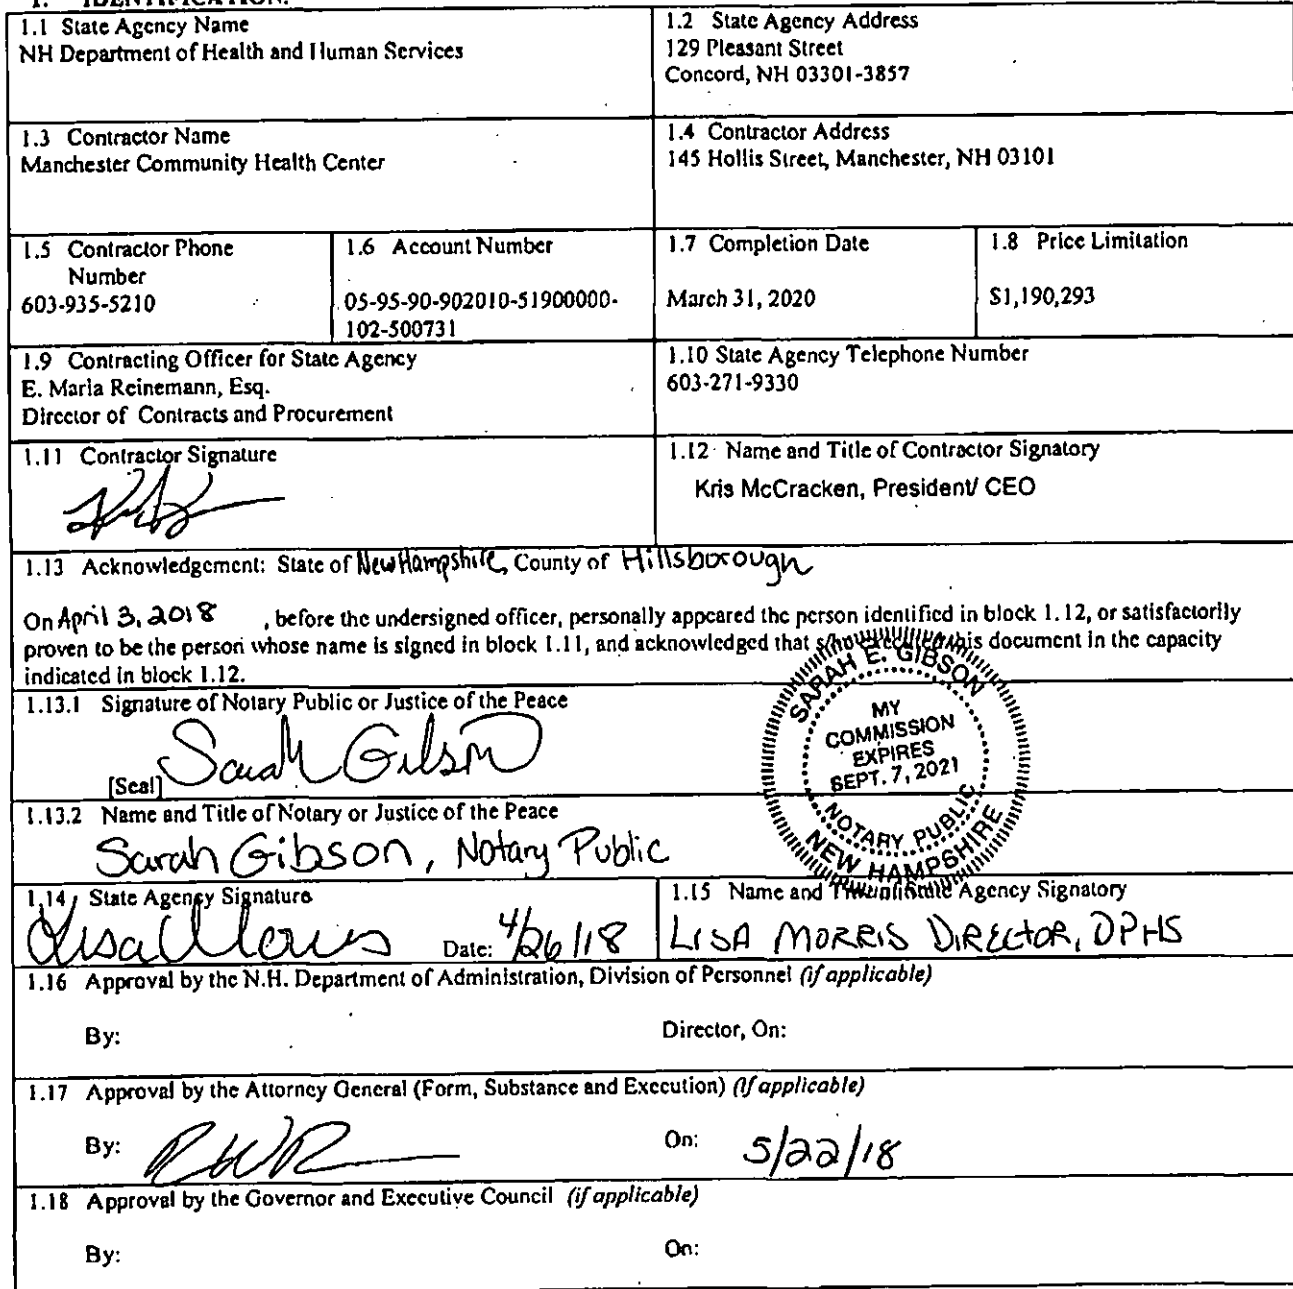 1. IDENTIFICATION.
1.1 State Agency Name
NH Department of Health and Human Services
1.2 State Agency Address
129 Pleasant Street
Concord, NH 03301-3857
1.3 Contractor Name
Manchester Community Health Center
1.4 Contractor Address
145 Hollis Street, Manchester, NH 03101
1.5 Contractor Phone
Number
603-935-5210
1.6 Account Number
05-95-90-902010-51900000-
102-500731
1.7 Completion Date
March 31, 2020
1.8 Price Limitation
$1,190,293
1.9 Contracting Officer for State Agency
E. Maria Reinemann, Esq.
Director of Contracts and Procurement
1.10 State Agency Telephone Number
603-271-9330
1.11 Contractor Signature
1.12 Name and Title of Contractor Signatory
Kris McCracken, President/ CEO
1.13 Acknowledgement: State of New Hampshire, County of Hillsborough
On April 3, 2018 , before the undersigned officer, personally appeared the person identified in block 1.12, or satisfactorily
proven to be the person whose name is signed in block 1.11, and acknowledged that this document in the capacity
indicated in block 1.12.
1.13.1 Signature of Notary Public or Justice of the Peace
Sarah Gibson
[Seal]
SARAH E. GIBSON
MY
COMMISSION
EXPIRES
SEPT. 7, 2021
NOTARY PUBLIC
NEW HAMPSHIRE
1.13.2 Name and Title of Notary or Justice of the Peace
Sarah Gibson, Notary Public
1.14 State Agency Signature
Lisa Morris Date: 4/26/18
1.15 Name and Agency Signatory
LISA MORRIS DIRECTOR, DPHS
1.16 Approval by the N.H. Department of Administration, Division of Personnel (if applicable)
By: Director, On:
1.17 Approval by the Attorney General (Form, Substance and Execution) (if applicable)
By: On: 5/22/18
1.18 Approval by the Governor and Executive Council (if applicable)
By: On: